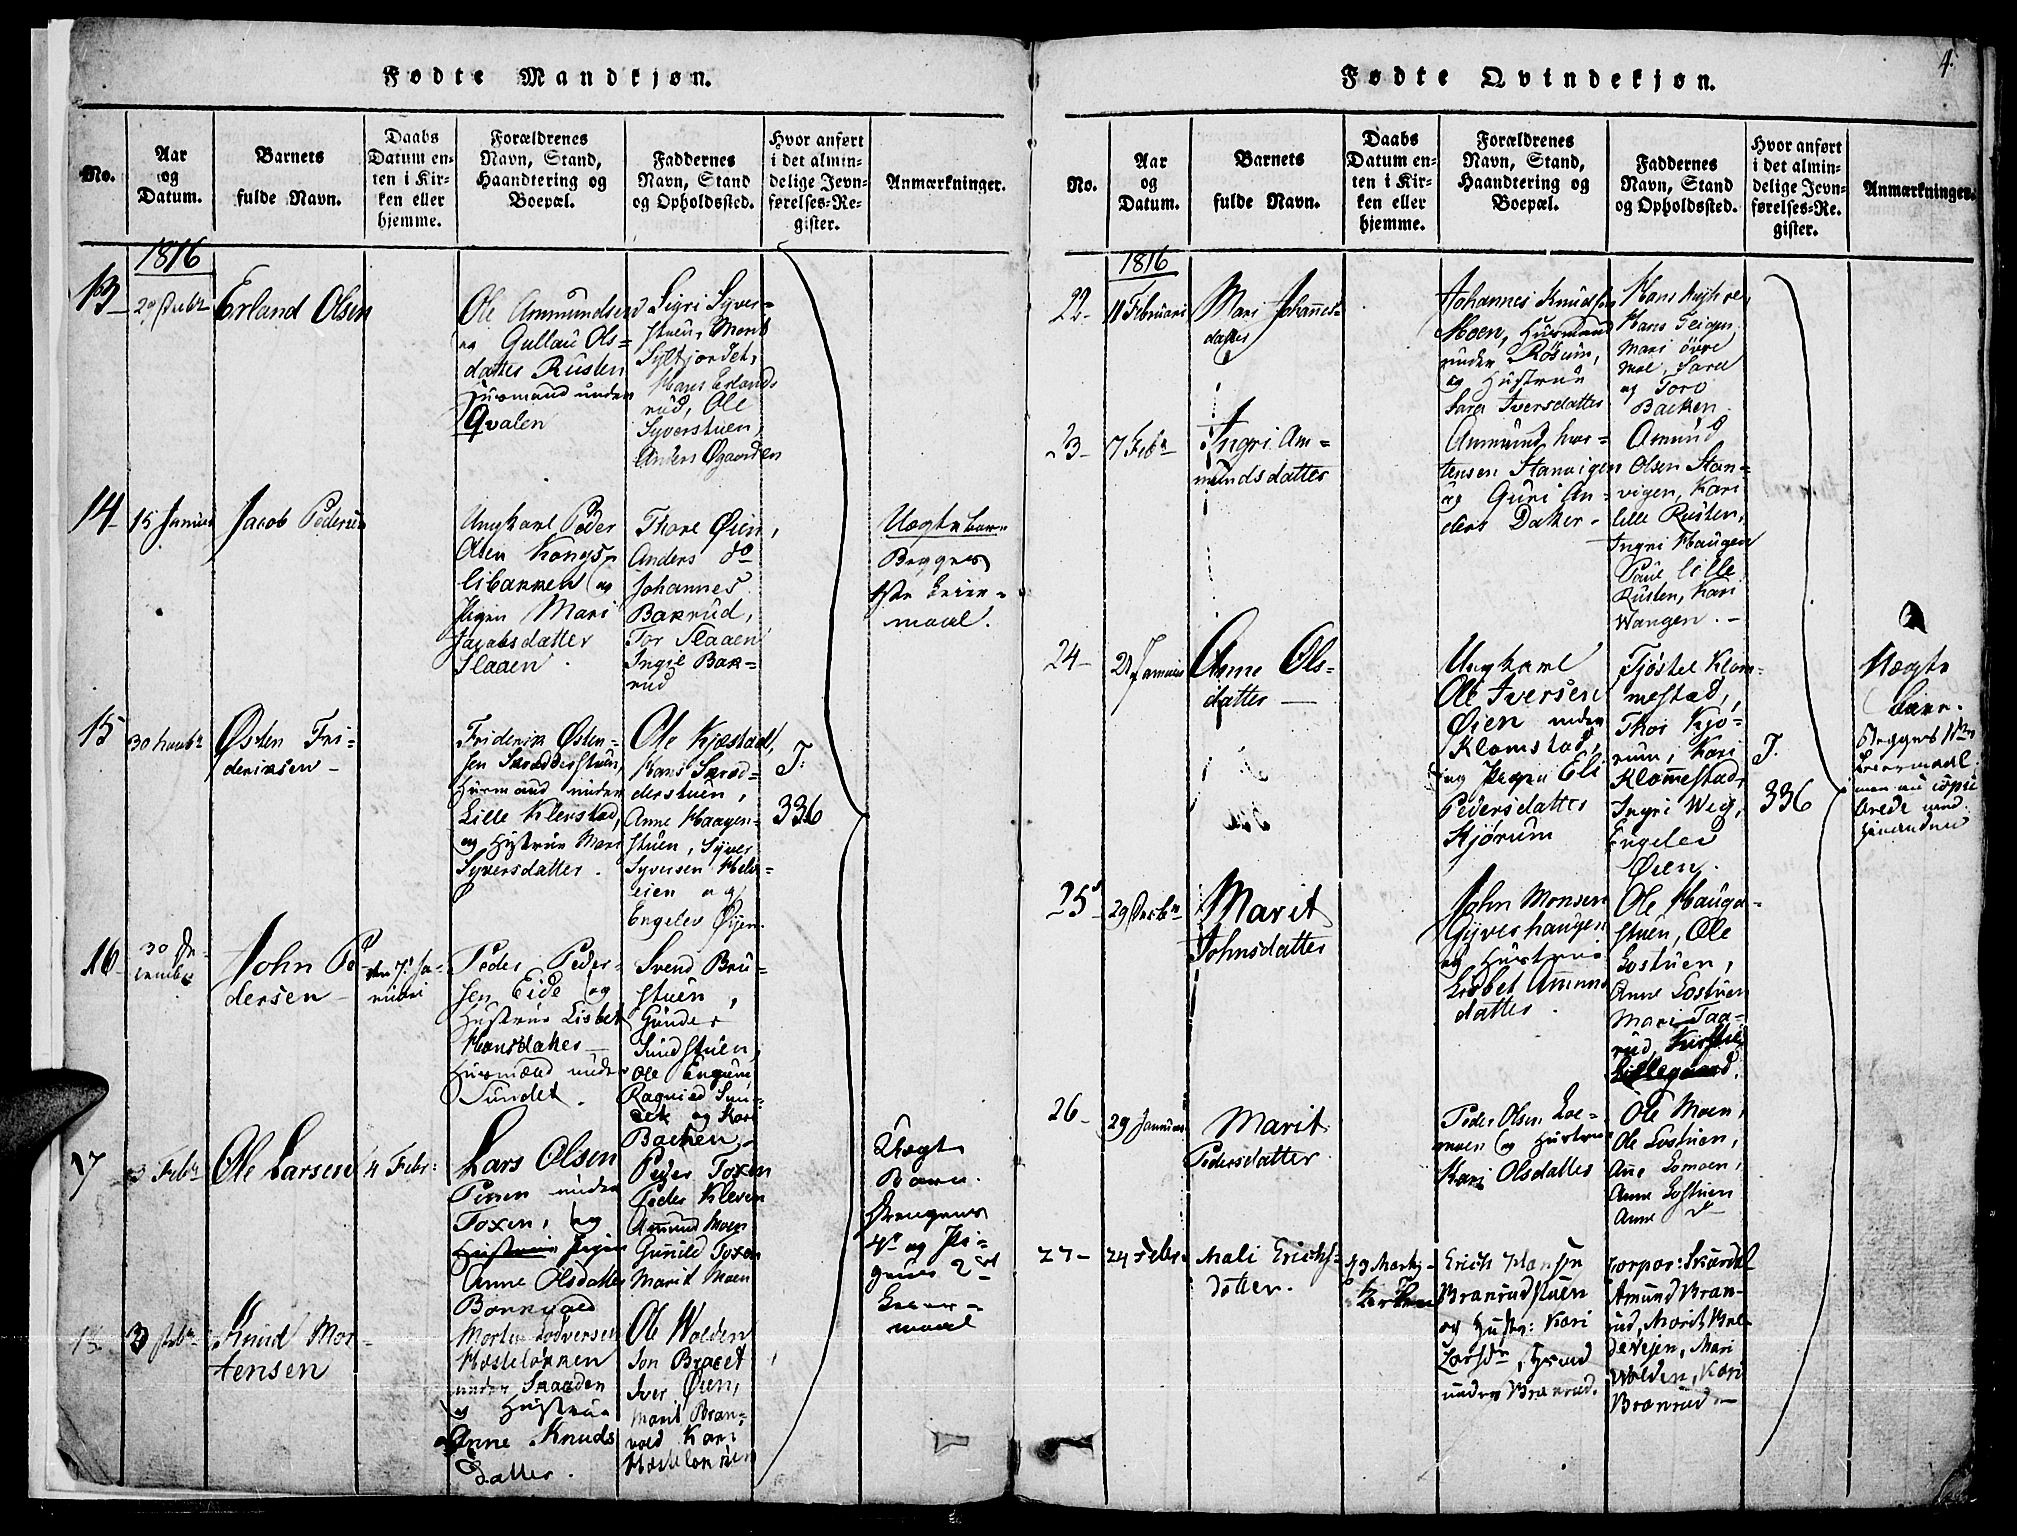 Fødte Mandkjøn.
No.
Aar
og
Datum.
Barnets
fulde Navn.
Daabs
Datum en-
ten i Kir-
ken eller
hjemme.
Forældrenes
Navn, Stand,
Haandtering og
Boepæl.
Faddernes
Navn, Stand
og Opholdssted.
Hvor anført
i det almin-
delige Jevn-
førelses-Re-
gister.
Anmærkninger.
1816
13
Erland Olsen
Ole Ammundsen
og Gullau Ols-
datter Rusten
Huusmand under
Qvalen
Sigri Syver-
stuen, Marit
Hans Erlands
rud, Ole
Syverstuen,
Anders Øgaarden
14
15 Januar
Jacob Pedersen
Ungkarl Peder
Olsen Kongs-
libakken og
Pigen Mari
Jacobsdatter
Slaaen.
Thore Øien,
Anders do
Johannes
Bakrud,
Tor Slaaen
Ingil Bak-
rud
Uægte barn
Begges
1ste Leier-
maal.
15
Østen Fri-
deriksen
Friderik Østen-
sen
Huusmand under
Lille Klevstad,
og Hustrue Mari
Syversdatter.
Ole Kjæstad,
Hans Skræd-
derstuen,
Anne Haagen-
stuen, Syver
Syversen
eien og
Engelev Øyen.
J.
336
16
30 De-
cember
John Pe-
dersen
den 7de Ja-
nuari
Peder Peder-
sen Eide og
Hustrue Lisbet
Hansdatter
Huusmand under
Sundet.
Svend Bru-
stuen,
Gunder
Sundstuen,
Ole Engum
Ragnild Sun-
det og Kari
Bachen
17
3 Febr
Ole Larsen
4 Febr:
Lars Olsen
under
Toxen, og
Hustrue Pigen
Anne Olsdatter
Peder Toxen
Peder Kleven
Amund Moen
Gunild Toxen
Marit Moen
Uægte
Barn.
Drengens
4de og Pi-
gens 2det
Leier-
maal
3 Febr
Knud Mor-
tensen
Morten
under
og Hustrue
Anne Knuds
datter.
Ole Volden
Iver Øien,
Marit Bran-
vold Kari
Fødte Qvindekjøn.
4.
No.
Aar
og
Datum.
Barnets
fulde Navn.
Daabs
Datum en-
ten i Kir-
ken eller
hjemme.
Forældrenes
Navn, Stand,
Haandtering og
Boepæl.
Faddernes
Navn, Stand
og Opholdssted.
Hvor anført
i det almin-
delige Jevn-
førelses-Re-
gister.
Anmærkninger.
1816
22
11 Februari
Mari Johannes-
datter
Johannes Knudsen
Moen, Huusmand
under Røsum,
og Hustrue
Sara Iversdatter
Hans Teigen
Mari øvre
Moe, Sara
og Toro
Backen
23
7 Febr
Ingri Am-
mundsdatter
Ammund
tensen Stanvigen
og Guri An-
ders Datter
Amund
Olsen Stan-
vigen, Kari
lille Rusten,
Ingri Haugen
Paul lille
Rusten, Kari
Wangen.
24
Anne Ols-
datter
Ungkarl
Ole Iversen
Øien under
Klomstad,
og Pigen Eli
Pedersdatter
Kjørum
Tjøstel Klom-
mestad,
Thor Kjø-
rum, Kari
Klommestad,
Ingri Weg,
Engelev
Øien.
J.
336
Uægte
barn.
Begges 1ste
Leiermaal
25
Marit
Johnsdatter
John Monsen
Gyveshaugen
og Hustrue
Lisbet Amunds
datter
Ole Hauga-
stuen, Ole
Lostuen,
Anne Lostuen
Mari Taa-
rud, Kirsti
Lillegaard.
26
29 Januar
Marit
Pedersdatter
Peder Olsen Loe-
moen og Hustrue
Kari Olsdatter
Ole Moen,
Ole Lostuen,
Ane Lomoen,
Anne Lostuen
Anne do
27
24 Febr
Mali Erichs-
datter.
Kirken
Erich Hansen
Branrudstuen
og Hustr: Kari
Larsdr,
under Branrud.
Amund Bran-
rud, Marit
Mari
Volden, Kari
Branrud